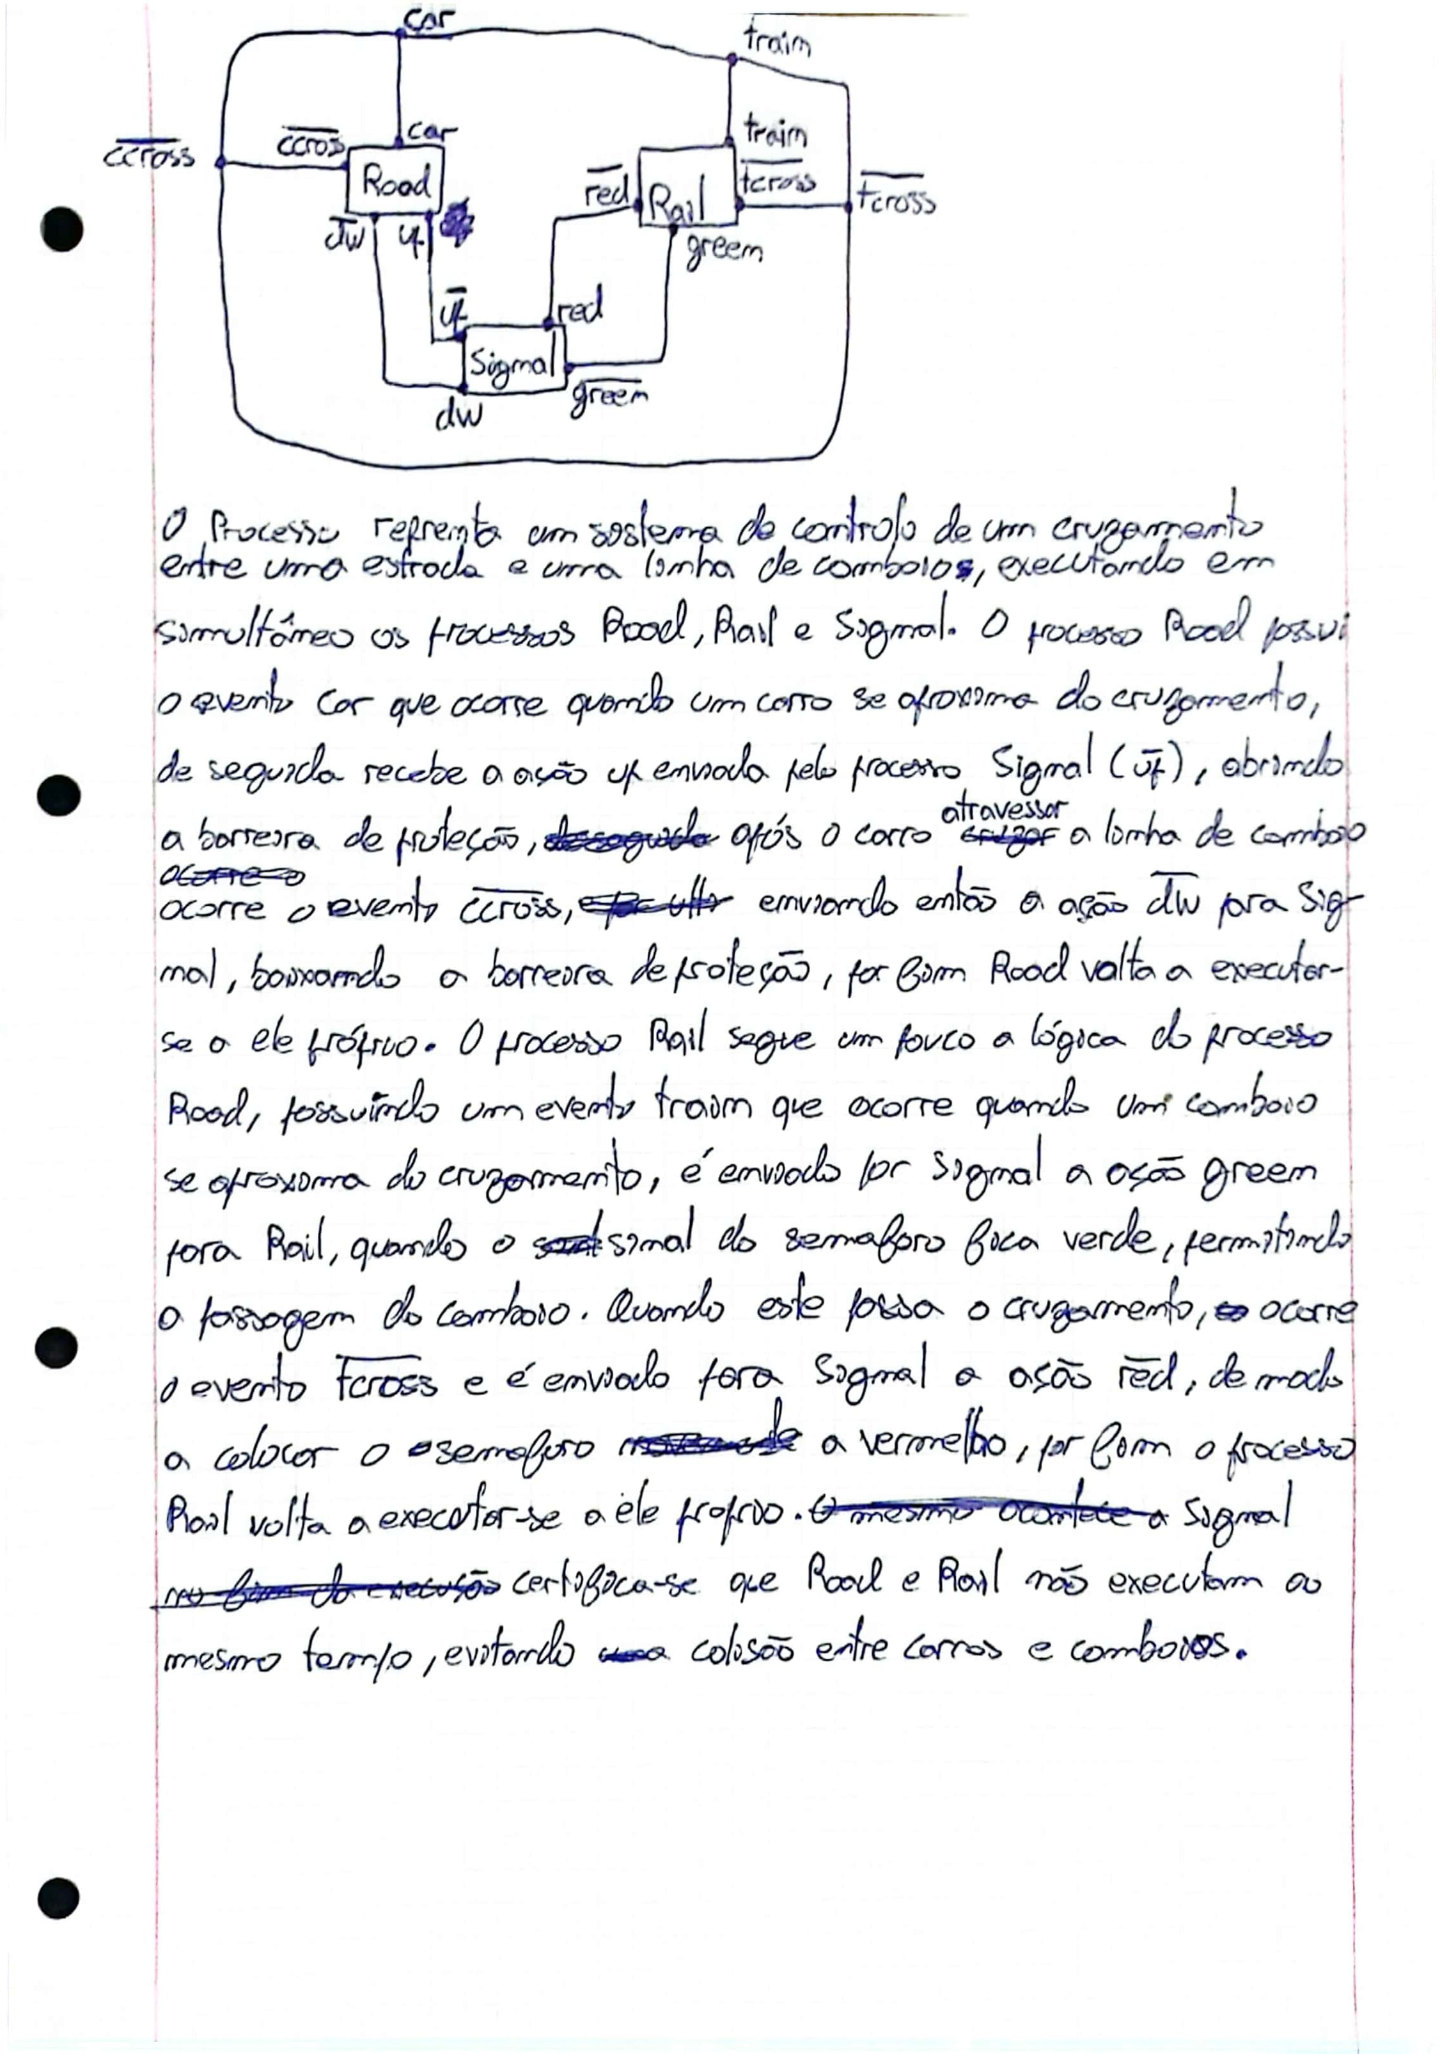 car
train
car
train
c̅c̅r̅o̅s̅s̅
c̅c̅r̅o̅s̅
Road
r̅e̅d̅
Rail
t̅c̅r̅o̅s̅s̅
t̅c̅r̅o̅s̅s̅
d̅w̅
up
green
u̅p̅
red
Signal
g̅r̅e̅e̅n̅
dw
O Processo reprenta um sistema de controlo de um cruzamento
entre uma estrada e uma linha de comboios, executando em
simultâneo os processos Road, Rail e Signal. O processo Road possui
o evento car que ocorre quando um carro se aproxima do cruzamento,
de seguida recebe a ação up enviada pelo processo Signal (u̅p̅), abrindo
a barreira de proteção, após o carro atravessar a linha de comboio
ocorre o evento c̅c̅r̅o̅s̅s̅, enviando então a ação d̅w̅ para Sig-
nal, baixando a barreira de proteção, por fim Road volta a executar-
se a ele próprio. O processo Rail segue um pouco a lógica do processo
Road, possuindo um evento train que ocorre quando um comboio
se aproxima do cruzamento, é enviado por Signal a ação green
para Rail, quando o sinal do semaforo fica verde, permitindo
a passagem do comboio. Quando este passa o cruzamento, ocorre
o evento t̅c̅r̅o̅s̅s̅ e é enviado para Signal a ação r̅e̅d̅, de modo
a colocar o semaforo a vermelho, por fim o processo
Rail volta a executar-se a ele proprio. Signal
certifica-se que Road e Rail não executam ao
mesmo tempo, evitando colisão entre carros e comboios.